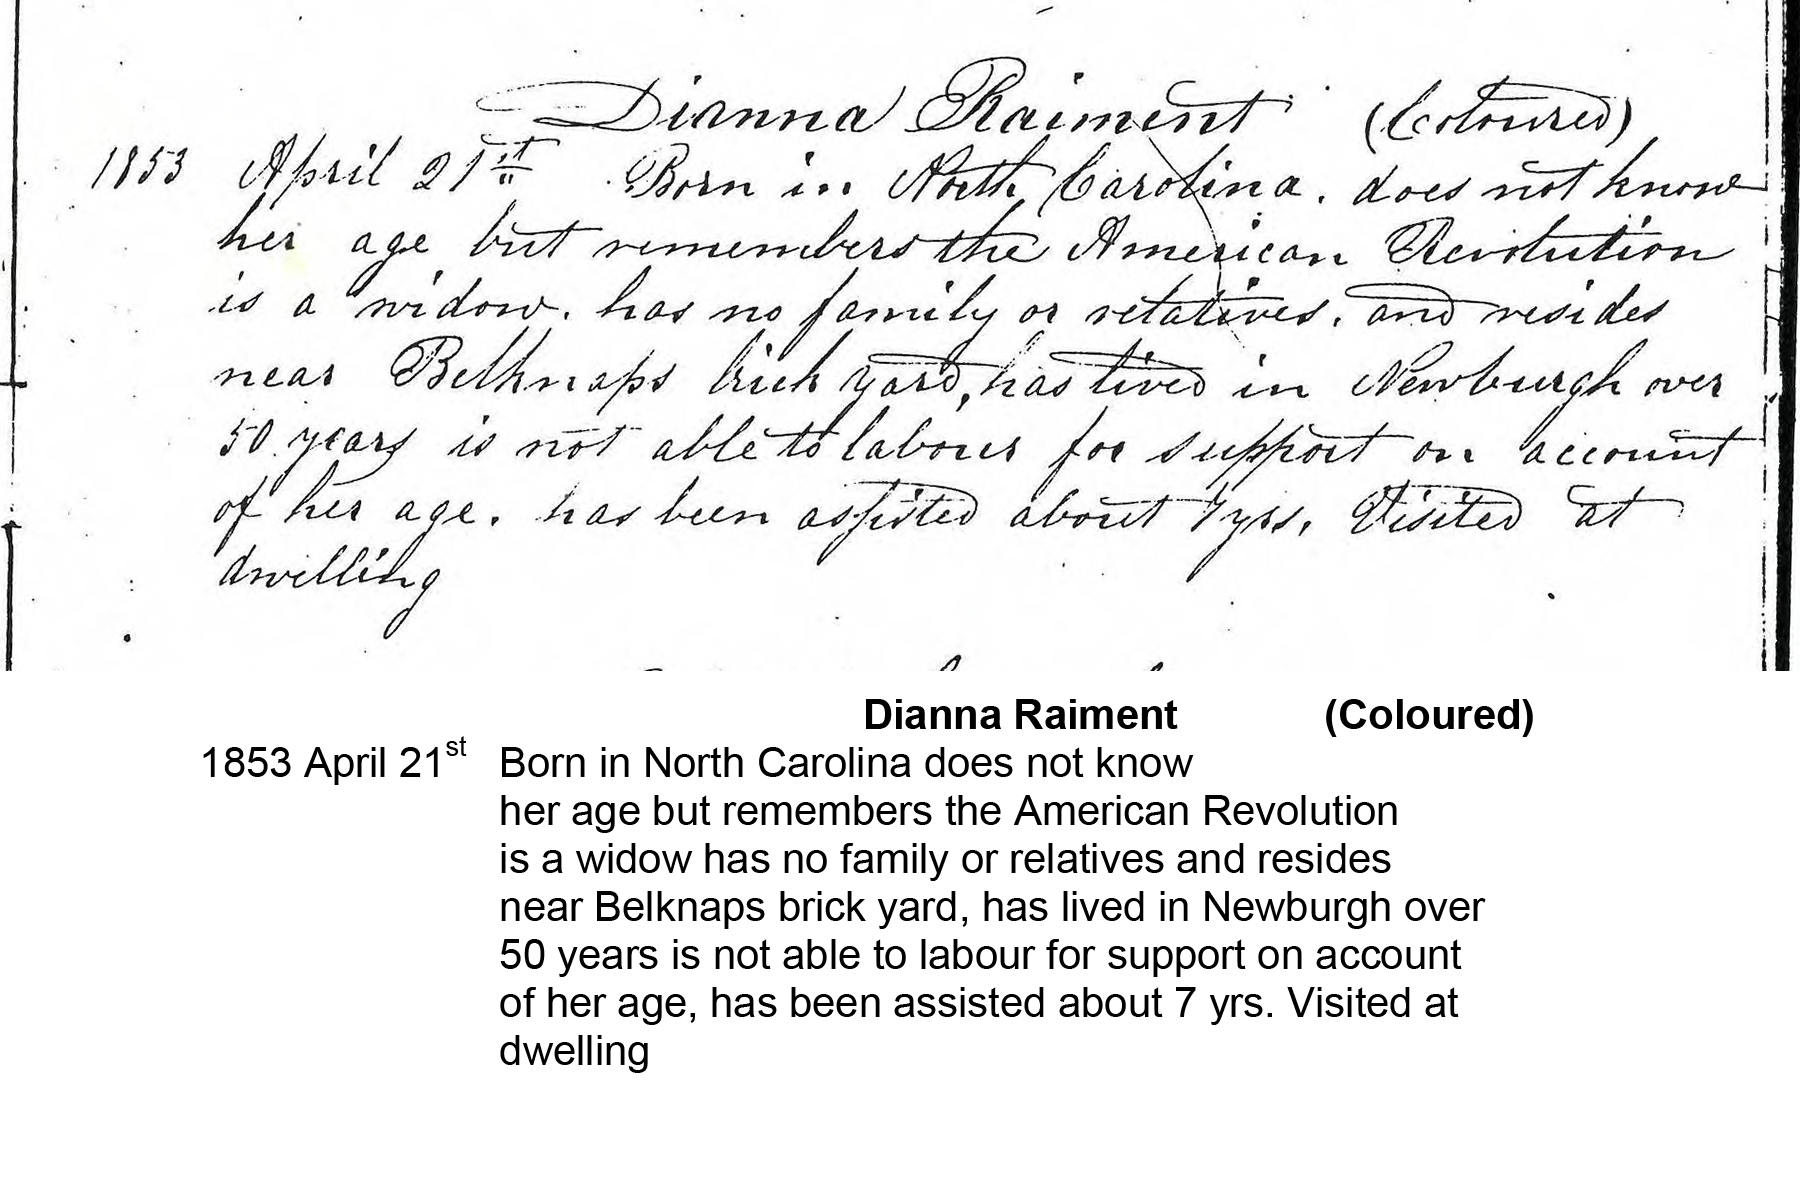 Dianna Raiment (Coloured)
1853 April 21st Born in North Carolina. does not know
her age but remembers the American Revolution
is a widow. has no family or relatives. and resides
near Belknaps brick yard, has lived in Newburgh over
50 years is not able to labour for support on account
of her age. has been assisted about 7 yrs. Visited at
dwelling
Dianna Raiment (Coloured)
1853 April 21st Born in North Carolina does not know
her age but remembers the American Revolution
is a widow has no family or relatives and resides
near Belknaps brick yard, has lived in Newburgh over
50 years is not able to labour for support on account
of her age, has been assisted about 7 yrs. Visited at
dwelling